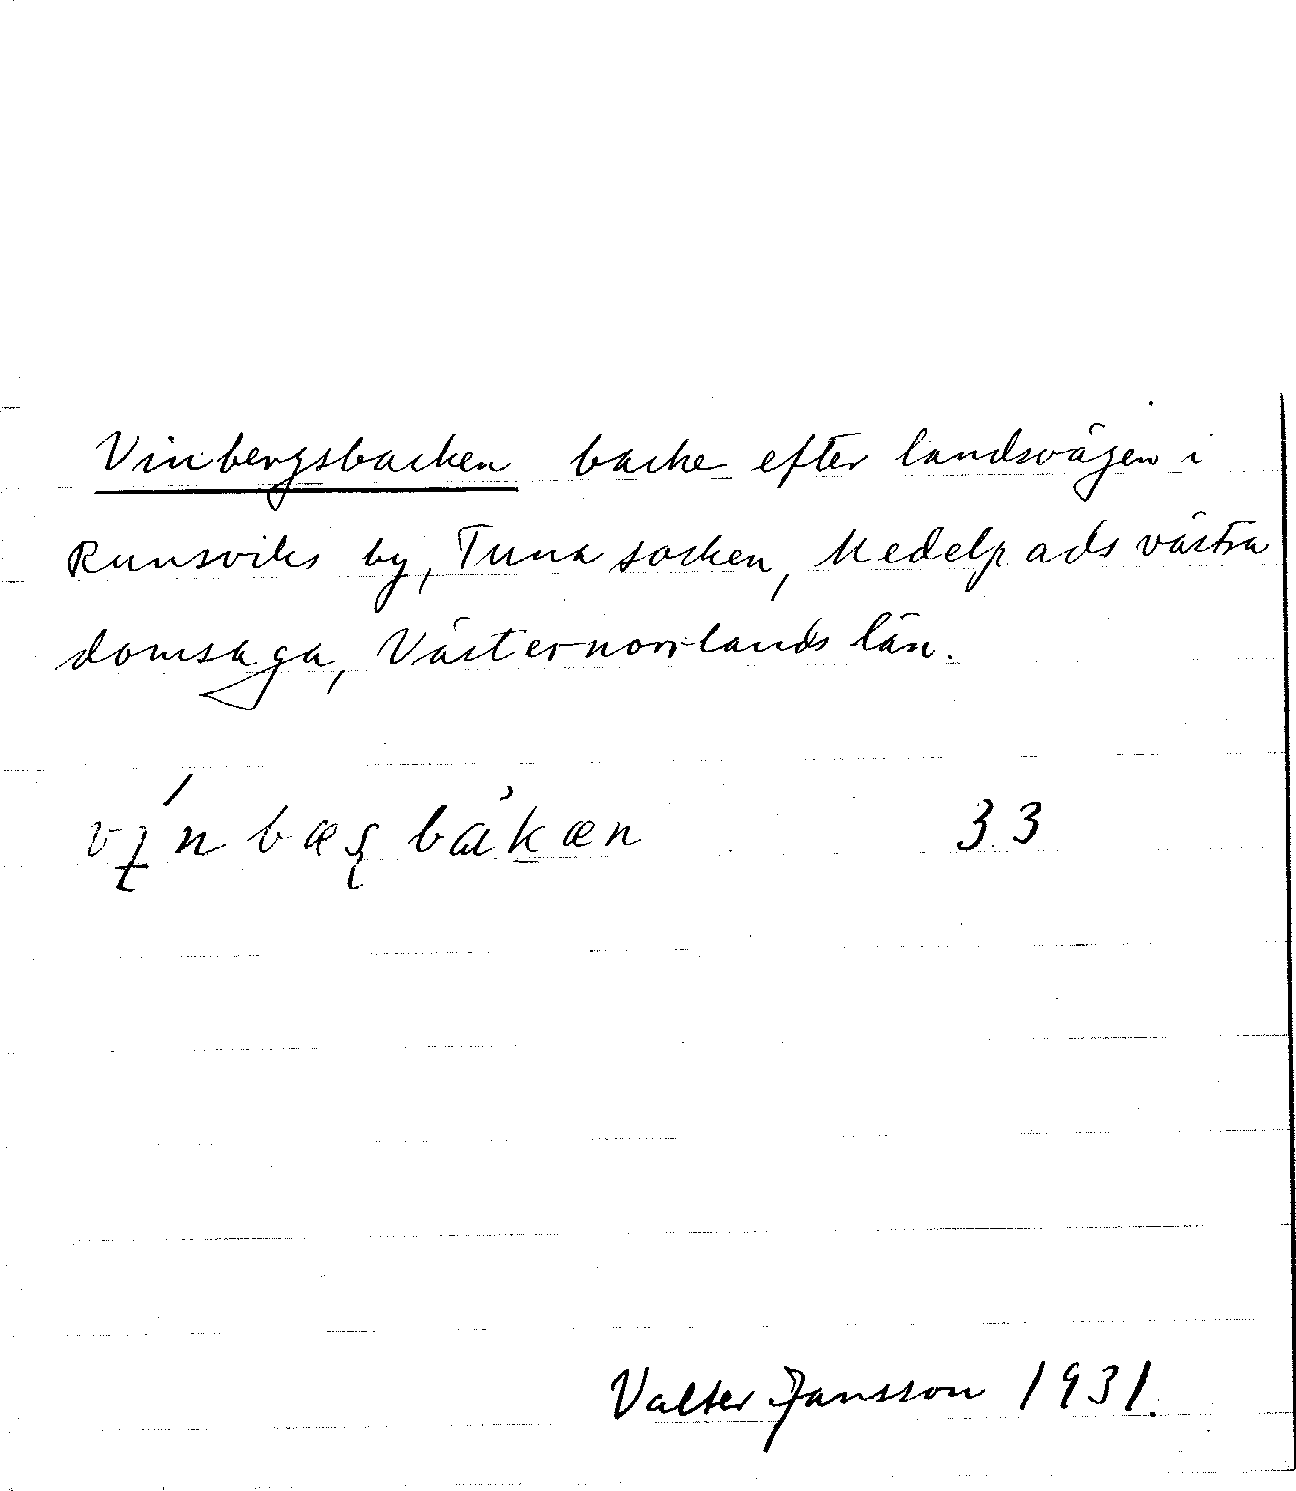 Vinbergsbacken backe efter landsvägen i
Runsviks by, Tuna socken, Medelpads västra
domsaga, Västernorrlands län.
33
Valter Jansson 1931.